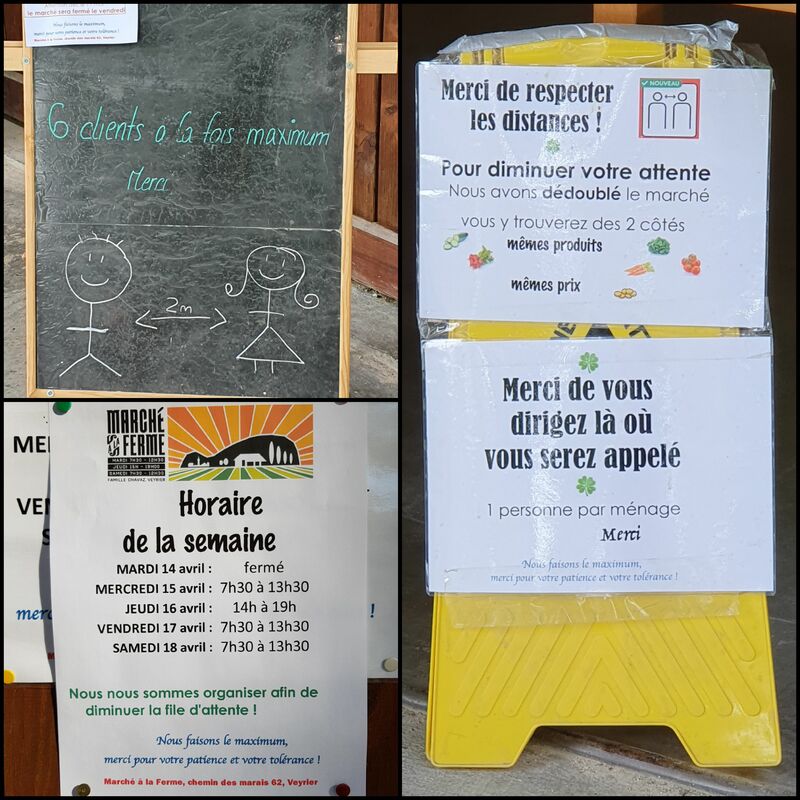 le marché sera fermé le vendredi
Nous faisons le maximum,
merci pour votre patience et votre tolérance !
Marché à la Ferme, chemin des marais 62, Veyrier
6 clients a la fois maximum
Merci
2m
Merci de respecter
les distances !
NOUVEAU
Pour diminuer votre attente
Nous avons dédoublé le marché
vous y trouverez des 2 côtés
mêmes produits
mêmes prix
Merci de vous
dirigez là où
vous serez appelé
1 personne par ménage
Merci
Nous faisons le maximum,
merci pour votre patience et votre tolérance !
MARCHÉ
FERME
MARDI 7H30 - 12H30
JEUDI 15H - 19H00
SAMEDI 7H30 - 12H30
FAMILLE CHAVAZ, VEYRIER
Horaire
de la semaine
MARDI 14 avril : fermé
MERCREDI 15 avril : 7h30 à 13h30
JEUDI 16 avril : 14h à 19h
VENDREDI 17 avril : 7h30 à 13h30
SAMEDI 18 avril : 7h30 à 13h30
Nous nous sommes organiser afin de
diminuer la file d'attente !
Nous faisons le maximum,
merci pour votre patience et votre tolérance !
Marché à la Ferme, chemin des marais 62, Veyrier